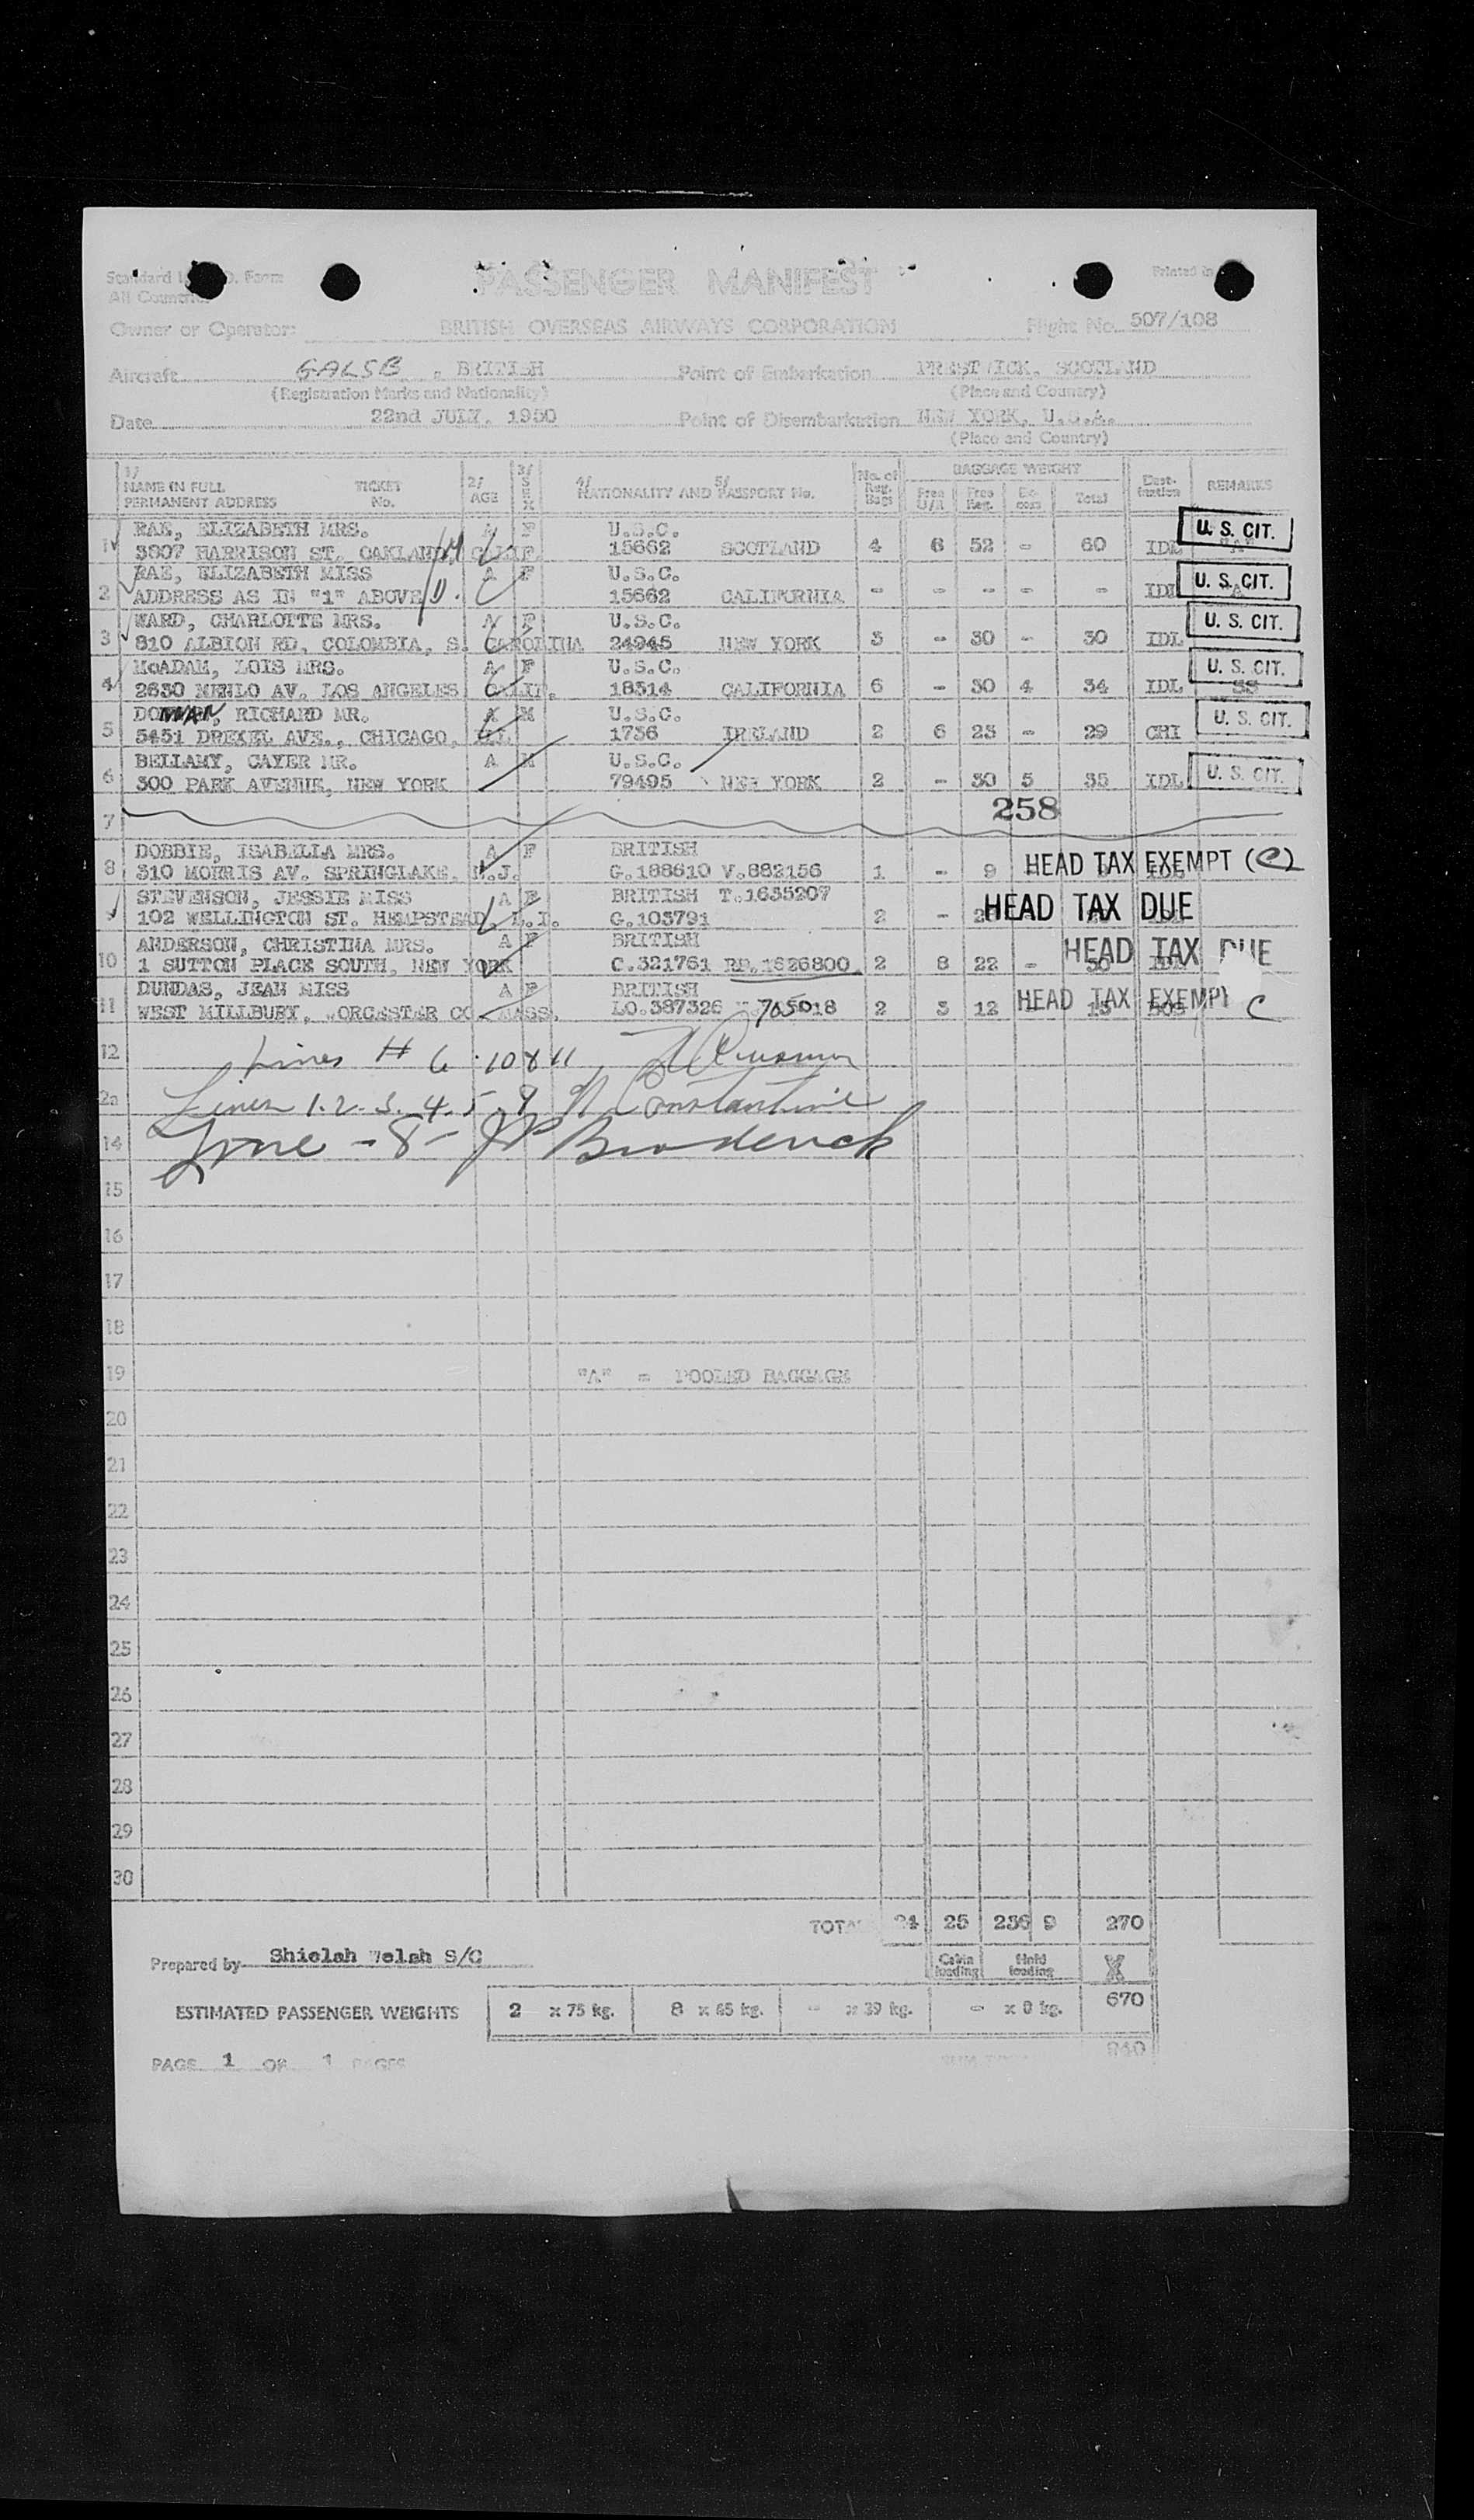 Standard I. O. Form
All Countries
PASSENGER MANIFEST
Printed in
Owner or Operator: BRITISH OVERSEAS AIRWAYS CORPORATION Flight No. 507/108
Aircraft GALSB , BRITISH Point of Embarkation PRESTWICK, SCOTLAND
(Registration Marks and Nationality) (Place and Country)
Date 22nd JULY, 1950 Point of Disembarkation NEW YORK, U.S.A.
(Place and Country)
1/ NAME IN FULL PERMANENT ADDRESS TICKET No. 2/ AGE 3/ SEX 4/ NATIONALITY AND 5/ PASSPORT No. No. of Reg. Bags BAGGAGE WEIGHT Free U/R Free Reg. Ex-cess Total Dest-ination REMARKS
RAE, ELIZABETH MRS. A F U.S.C. U.S. CIT.
1 3807 HARRISON ST. OAKLAND CALIF. 15662 SCOTLAND 4 6 52 - 60 IDL "A"
RAE, ELIZABETH MISS A F U.S.C. U.S. CIT.
2 ADDRESS AS IN "1" ABOVE 15662 CALIFORNIA - - - - - IDL "A"
WARD, CHARLOTTE MRS. A F U.S.C. U.S. CIT.
3 810 ALBION RD, COLOMBIA, S. CAROLINA 24945 NEW YORK 3 - 30 - 30 IDL
McADAM, LOIS MRS. A F U.S.C. U.S. CIT.
4 2630 MENLO AV, LOS ANGELES CALIF. 18314 CALIFORNIA 6 - 30 4 34 IDL SS
RICHARD MR. A M U.S.C. U.S. CIT.
5 5451 DREXEL AVE., CHICAGO, ILL. 1736 IRELAND 2 6 23 - 29 CHI
BELLAMY, GAYER MR. A M U.S.C.
6 300 PARK AVENUE, NEW YORK 79495 NEW YORK 2 - 30 5 35 IDL U.S. CIT.
7 258
DOBBIE, ISABELLA MRS. A F BRITISH
8 310 MORRIS AV. SPRINGLAKE, N.J. G.188610 V.882156 1 - 9 HEAD TAX EXEMPT (C)
STEVENSON, JESSIE MISS A F BRITISH T.1635207
102 WELLINGTON ST. HEMPSTEAD, L.I. G.103791 2 - HEAD TAX DUE
ANDERSON, CHRISTINA MRS. A F BRITISH
10 1 SUTTON PLACE SOUTH, NEW YORK C.321761 RP.1626800 2 8 22 - 30 HEAD TAX DUE
DUNDAS, JEAN MISS A F BRITISH
11 WEST MILLBURY, WORCESTER CO MASS. LO.387326 705018 2 3 12 15 BOS HEAD TAX EXEMPT C
12 Lines # 6 . 10 & 11
2a Lines 1. 2. 3. 4. 5. 9 N Constantine
14 Line - 8 - JP Broderick
15
16
17
18
19 "A" = POOLED BAGGAGE
20
21
22
23
24
25
26
27
28
29
30
TOTAL 24 25 236 9 270
Prepared by Shielah Welsh S/C Cabin loading Hold loading X
ESTIMATED PASSENGER WEIGHTS 2 x 75 kg. 8 x 65 kg. - x 39 kg. - x 8 kg. 670
PAGE 1 OF 1 PAGES 940